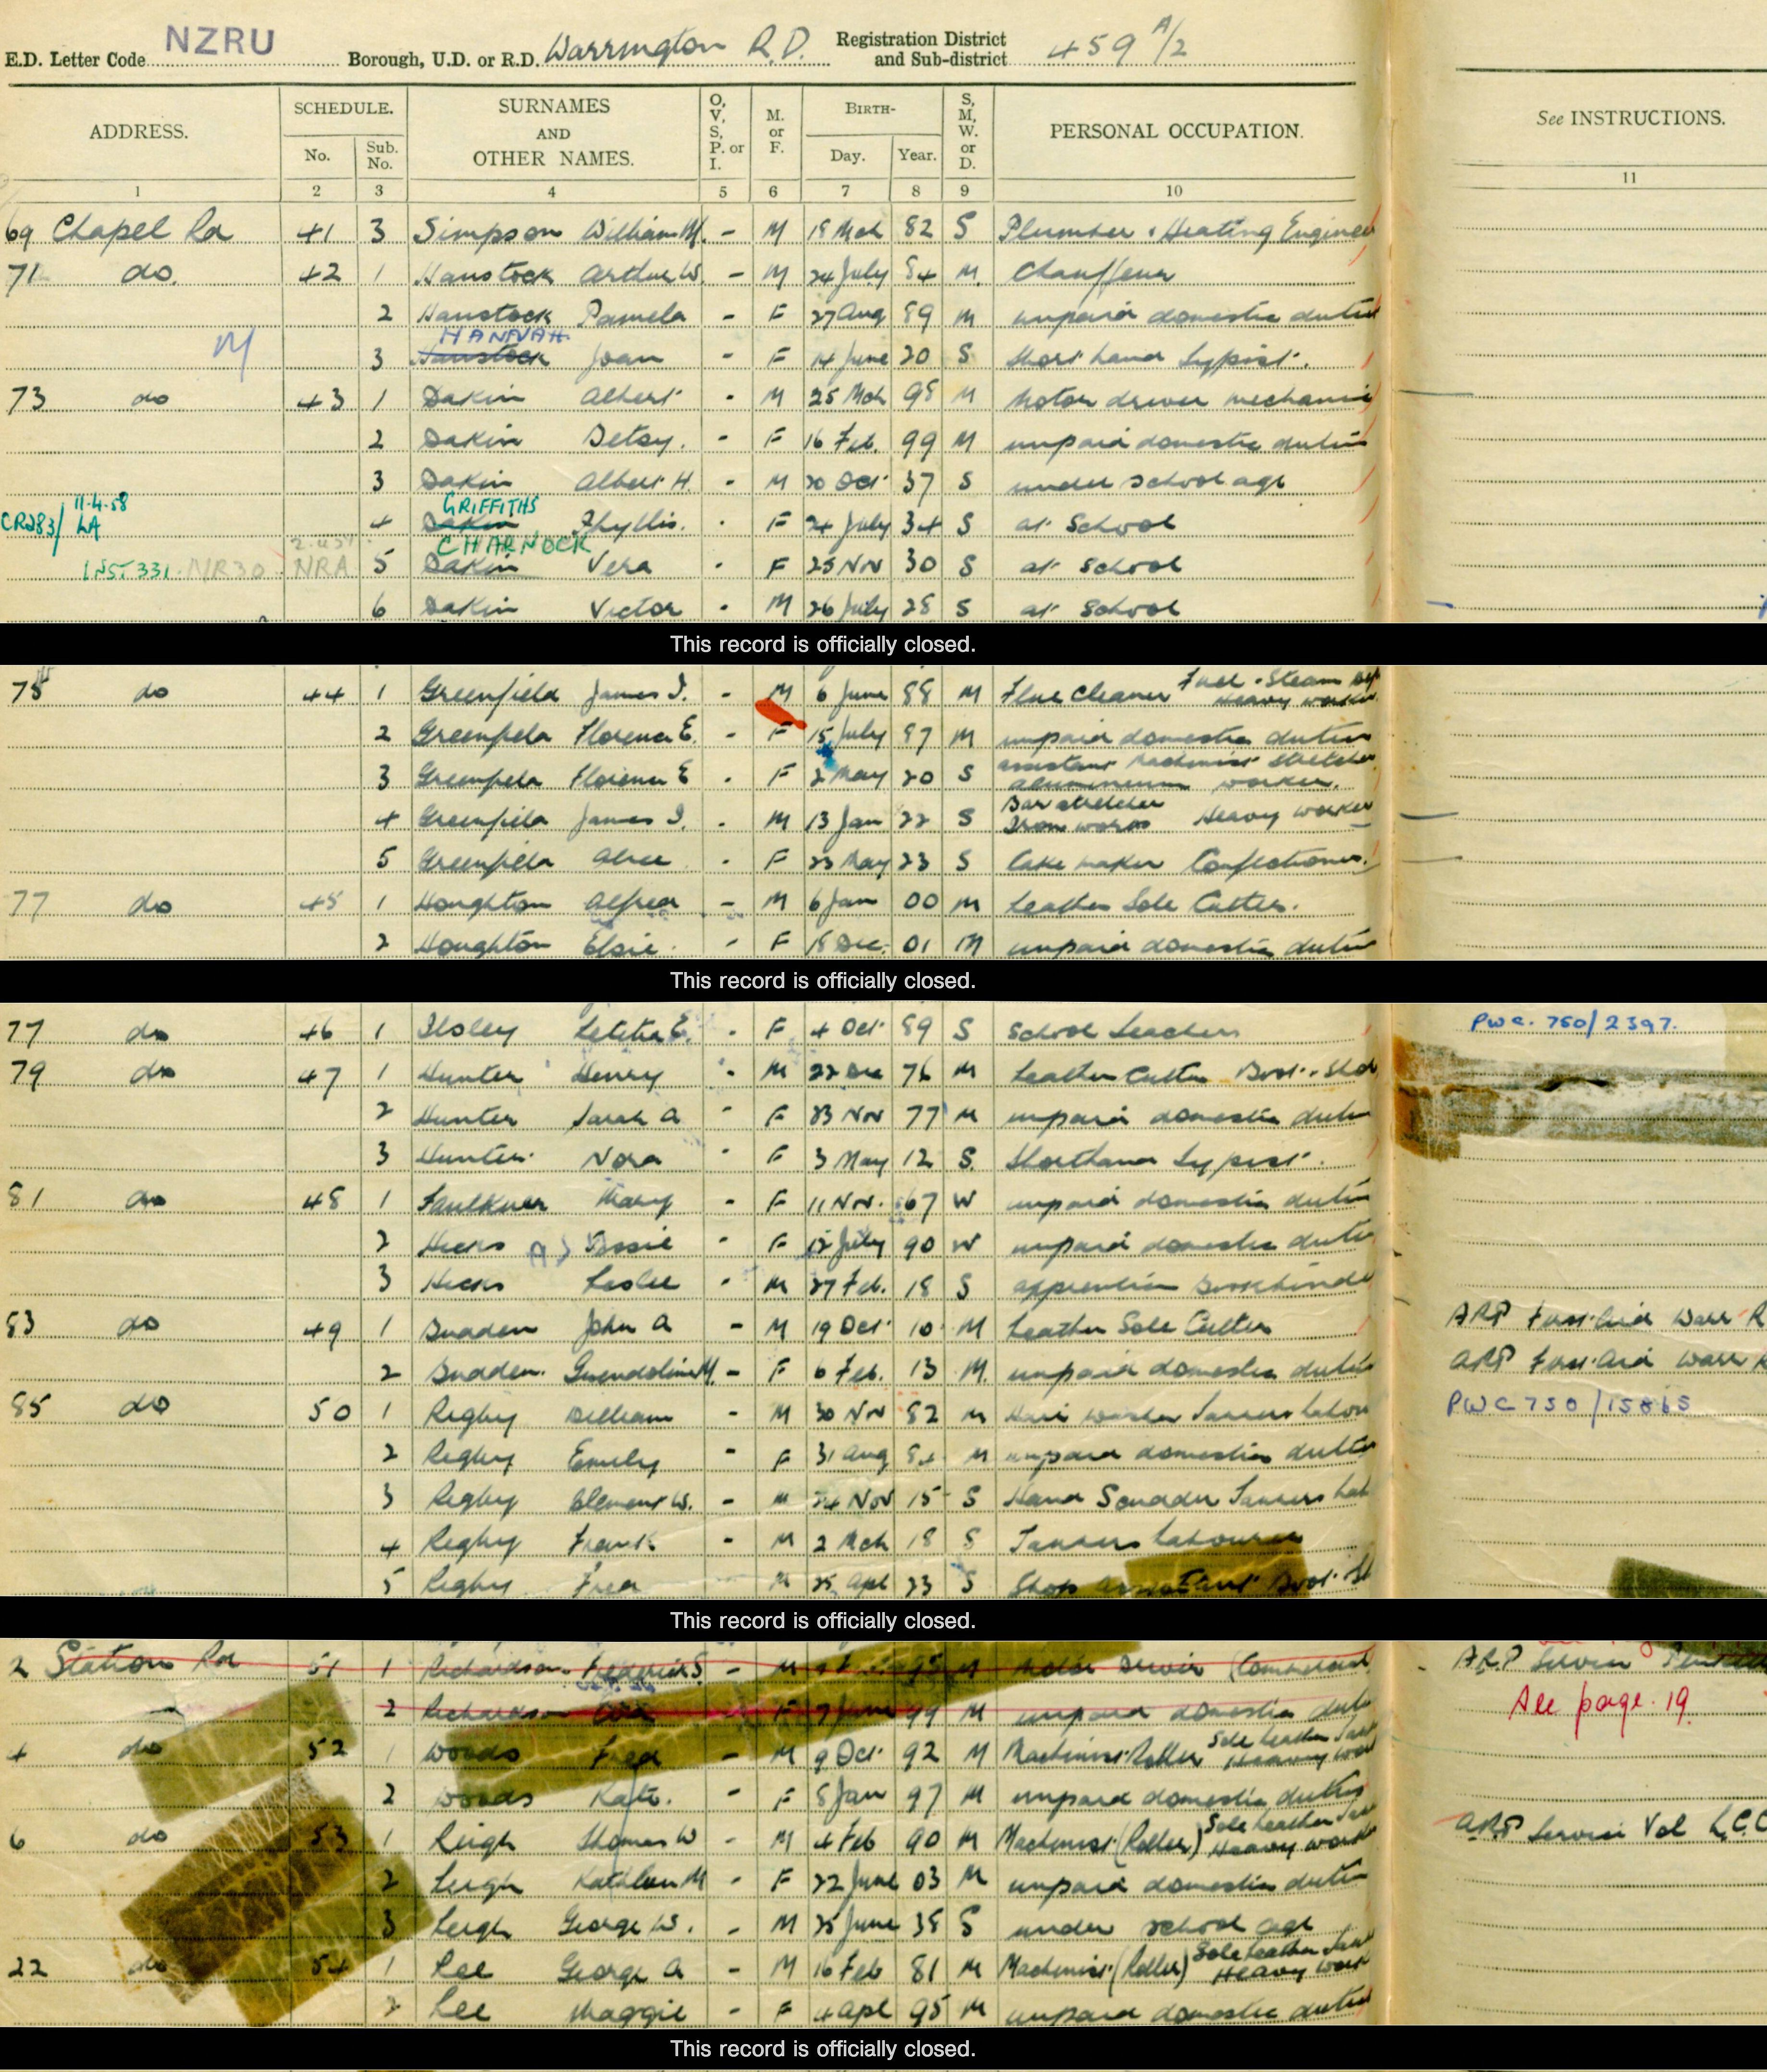 E.D. Letter Code NZRU Borough, U.D. or R.D. Warrington R.D. Registration District and Sub-district 459 A/2
ADDRESS. SCHEDULE. No. Sub. No. SURNAMES AND OTHER NAMES. O, V, S, P. or I. M. or F. BIRTH- Day. Year. S, M, W. or D. PERSONAL OCCUPATION. See INSTRUCTIONS.
1 2 3 4 5 6 7 8 9 10 11
69 Chapel Rd 41 3 Simpson William M. - M 18 Mch 82 S Plumber & Heating Engineer
71 do. 42 1 Hanstock Arthur W. - M 24 July 84 M. Chauffeur
2 Hanstock Pamela - F 27 Aug 89 M unpaid domestic duties
HANNAH
M 3 Hanstock Joan - F 14 June 20 S Shorthand Typist.
73 do 43 1 Dakin Albert - M 25 Mch 98 M Motor driver mechanic
2 Dakin Betsy. - F 16 Feb. 99 M unpaid domestic duties
3 Dakin Albert H. - M 20 Oct 37 S under school age
11.4.58 GRIFFITHS
CR283/ LA 4 Dakin Phyllis. - F 24 July 34 S at School
CHARNOCK
INST 331 NR30 NRA 5 Dakin Vera - F 25 Nov 30 S at School
6 Dakin Victor - M 26 July 28 S at School
This record is officially closed.
75 do 44 1 Greenfield James I. - M 6 June 88 M Flue Cleaner Fuel & Steam Heavy worker
2 Greenfield Florence E. - F 15 July 87 M unpaid domestic duties
3 Greenfield Florence E - F 2 May 20 S assistant Machinist Stretcher aluminium worker.
4 Greenfield James I. - M 13 Jan 22 S Bar stretcher Iron works Heavy worker
5 Greenfield Alice - F 23 May 23 S Cake maker Confectioner.
77 do 45 1 Houghton Alfred - M 6 Jan 00 M Leather Sole Cutter.
2 Houghton Elsie. - F 18 Dec. 01 M unpaid domestic duties
This record is officially closed.
77 do 46 1 Ilsley Letitia E. - F 4 Oct 89 S School Teacher PWC. 750/2397.
79 do 47 1 Hunter Henry - M 22 Dec 76 M Leather Cutter Boot & Shoe
2 Hunter Sarah A - F 23 Nov 77 M unpaid domestic duties
3 Hunter. Nora - F 3 May 12 S. Shorthand Typist.
81 do 48 1 Faulkner Mary - F 11 Nov. 67 W unpaid domestic duties
2 Hicks Bessie - F 12 July 90 W unpaid domestic duties
3 Hicks Leslie - M 27 Feb. 18 S apprentice Bookbinder
83 do 49 1 Budden John A - M 19 Oct 10 M Leather Sole Cutter ARP First Aid Warr R
2 Budden. Gwendoline M. - F 6 Feb. 13 M. unpaid domestic duties ARP First Aid Warr R
85 do 50 1 Rigby William - M 30 Nov 82 M Hair Washer Tanners Labour PWC 750/15865
2 Rigby Emily - F 31 Aug 84 M unpaid domestic duties
3 Rigby Clement W. - M 24 Nov 15 S Hand Scudder Tanners Lab
4 Rigby Frank - M 2 Mch 18 S Tanners Labourer
5 Rigby Fred M 25 Apl 23 S Shop assistant Boot Sh
This record is officially closed.
2 Station Rd 51 1 Richardson Frederick S. - M 95 M Motor Driver (Commercial ARP Service
2 Richardson F 7 June 99 M unpaid domestic duties See page. 19.
4 do 52 1 Woods Fred - M 9 Oct 92 M Machinist Roller Sole Leather Tan Heavy work
2 Woods Kate. - F 8 Jan 97 M unpaid domestic duties
6 do 53 1 Leigh Thomas W - M 4 Feb 90 M Machinist (Roller) Sole Leather Tan Heavy work ARP Service Vol L.C.C
2 Leigh Kathleen M - F 22 June 03 M unpaid domestic duties
3 Leigh George W. - M 25 June 35 S under school age
22 do 54 1 Lee George A - M 16 Feb 81 M Machinist (Roller) Sole Leather Tan Heavy work
2 Lee Maggie - F 4 Apl 95 M unpaid domestic duties
This record is officially closed.